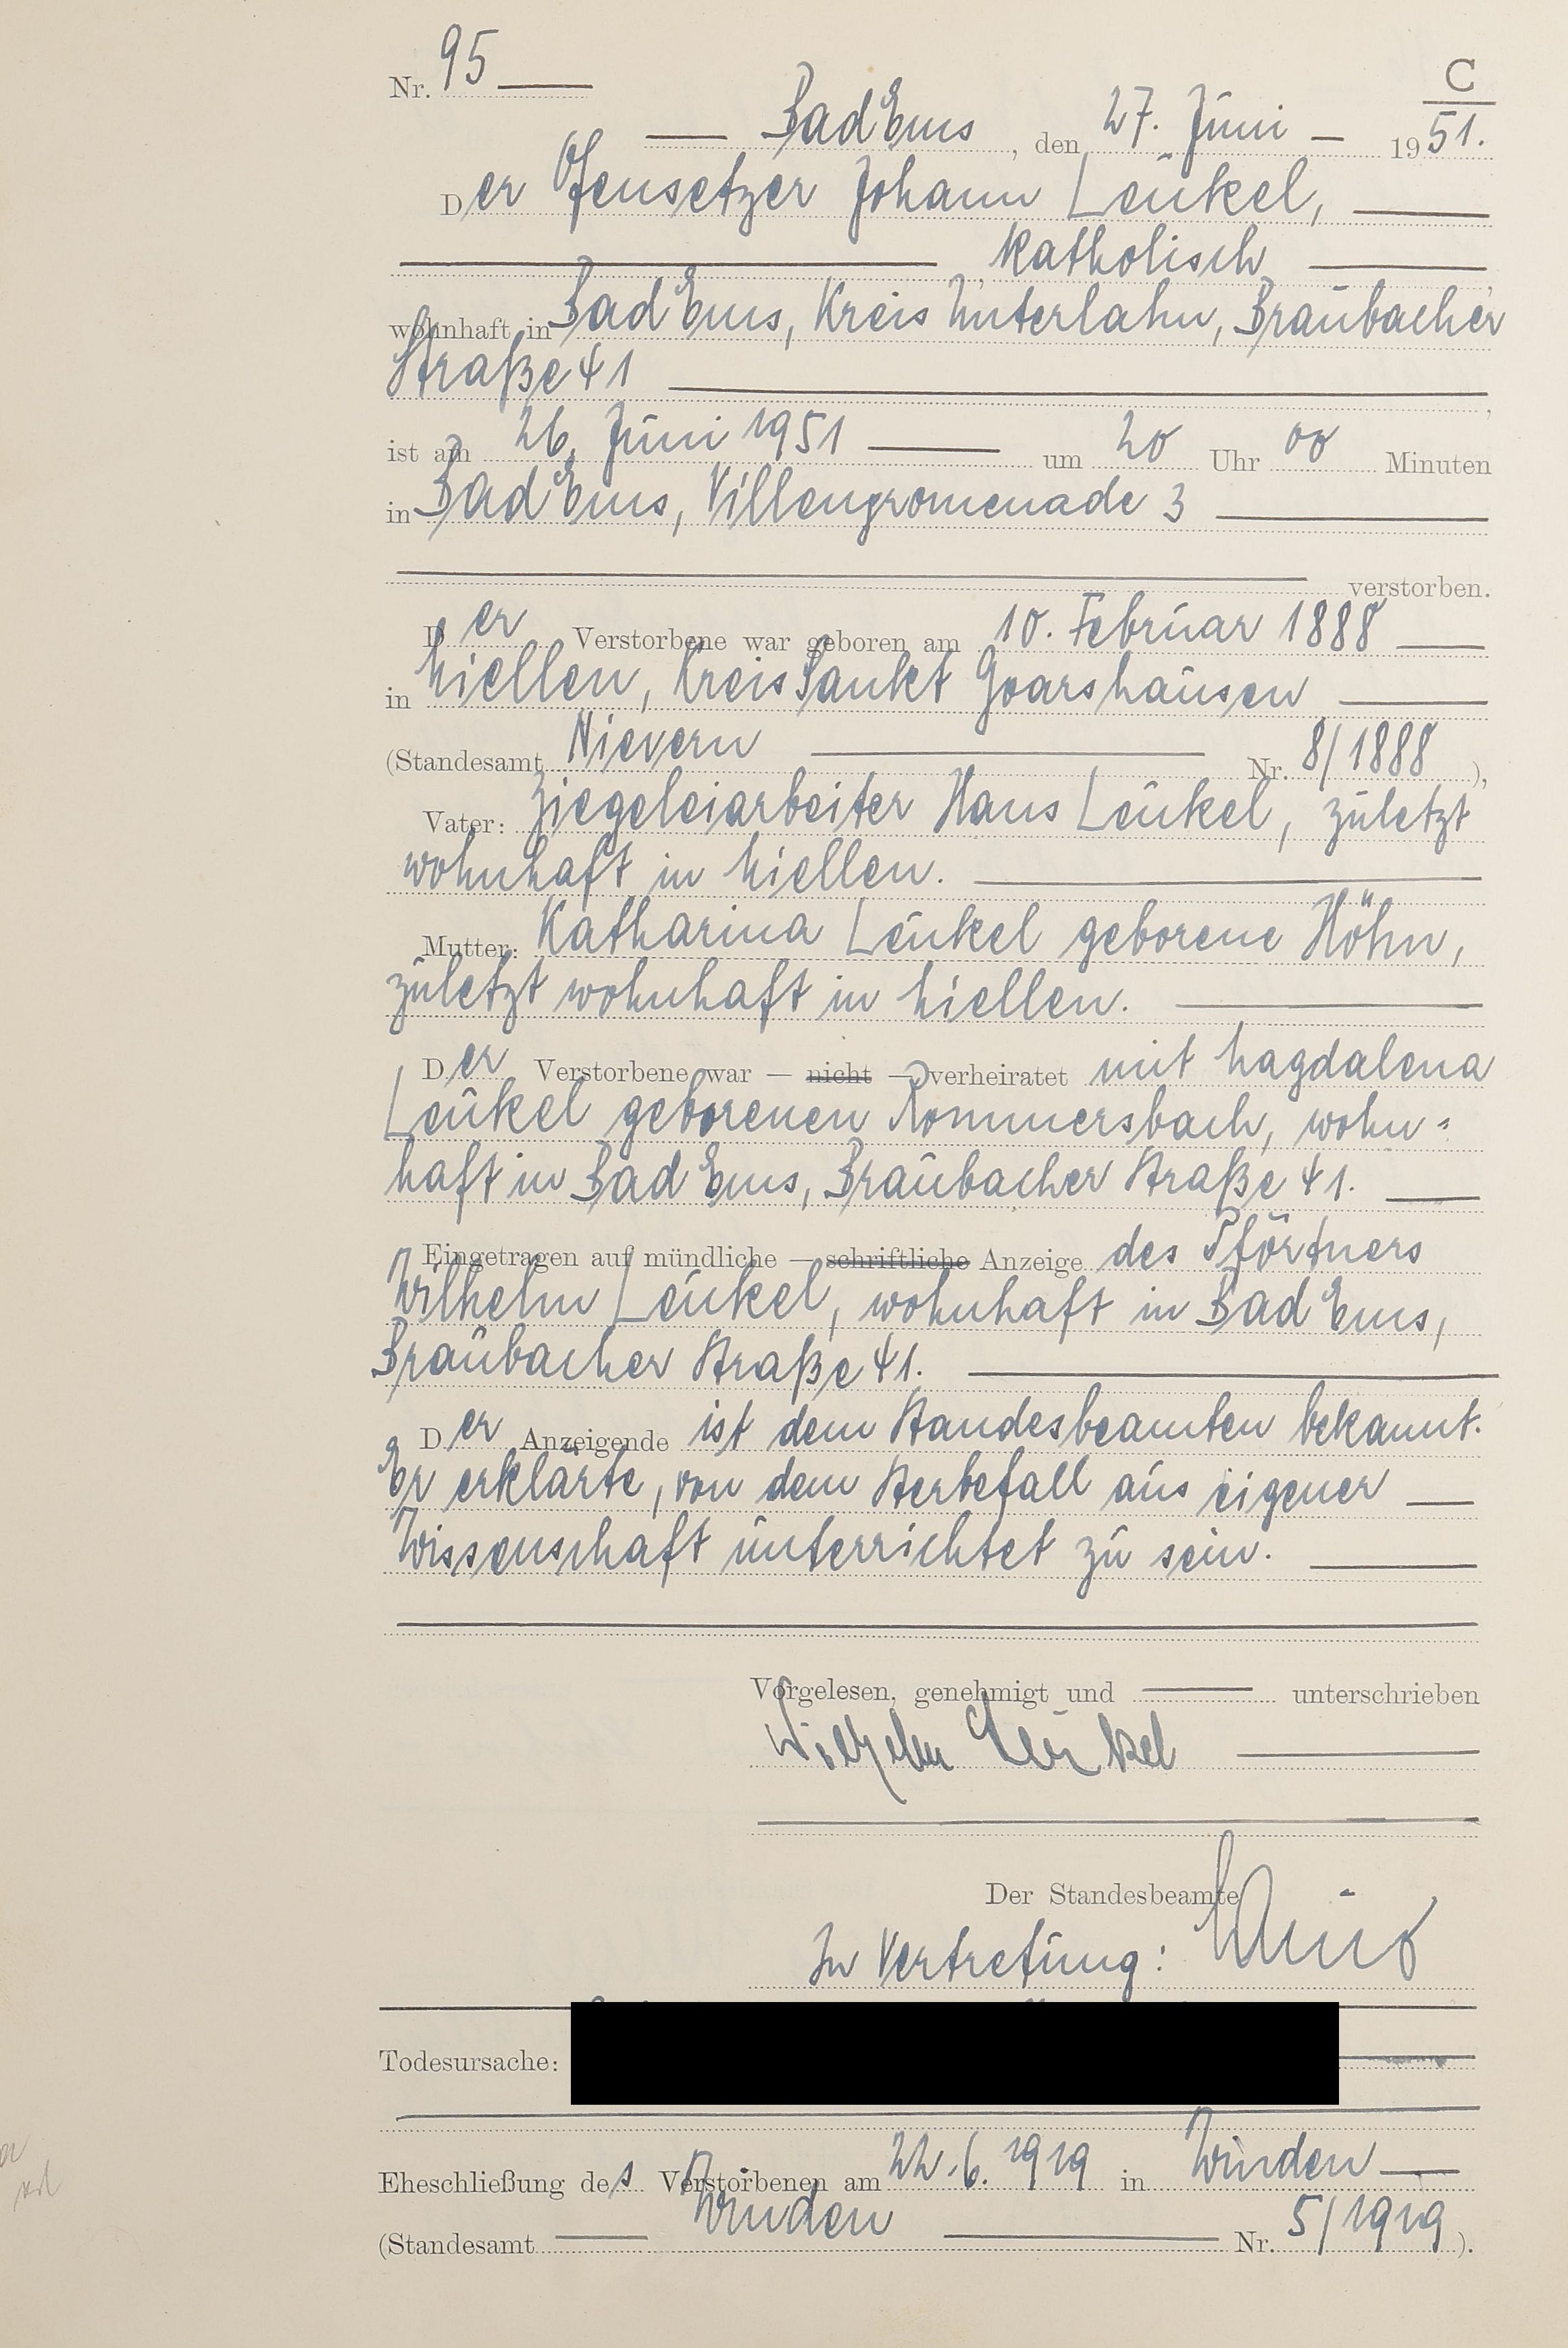 Nr. 95
C
Bad Ems, den 27. Juni 1951.
Der Ofensetzer Johann Leukel,
katholisch,
wohnhaft in Bad Ems, Kreis Unterlahn, Braubacher
Straße 41,
ist am 26. Juni 1951 um 20 Uhr 00 Minuten
in Bad Ems, Villenpromenade 3
verstorben.
Der Verstorbene war geboren am 10. Februar 1888
in Miellen, Kreis Sankt Goarshausen
(Standesamt Nievern Nr. 8/1888),
Vater: Ziegeleiarbeiter Hans Leukel, zuletzt
wohnhaft in Miellen.
Mutter: Katharina Leukel geborene Höhn,
zuletzt wohnhaft in Miellen.
Der Verstorbene war — nicht — verheiratet mit Magdalena
Leukel geborenen Rommersbach, wohn=
haft in Bad Ems, Braubacher Straße 41.
Eingetragen auf mündliche — schriftliche Anzeige des Pförtners
Wilhelm Leukel, wohnhaft in Bad Ems,
Braubacher Straße 41.
Der Anzeigende ist dem Standesbeamten bekannt.
Er erklärte, von dem Sterbefall aus eigener
Wissenschaft unterrichtet zu sein.
Vorgelesen, genehmigt und unterschrieben
Wilhelm Leukel
Der Standesbeamte
In Vertretung:
Todesursache:
Eheschließung des Verstorbenen am 22.6.1919 in Winden
(Standesamt Winden Nr. 5/1919).